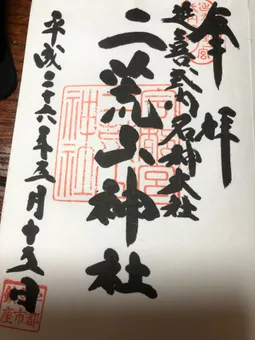 奉拝
延喜式内名神大社
二荒山神社
平成二十六年 月十五日